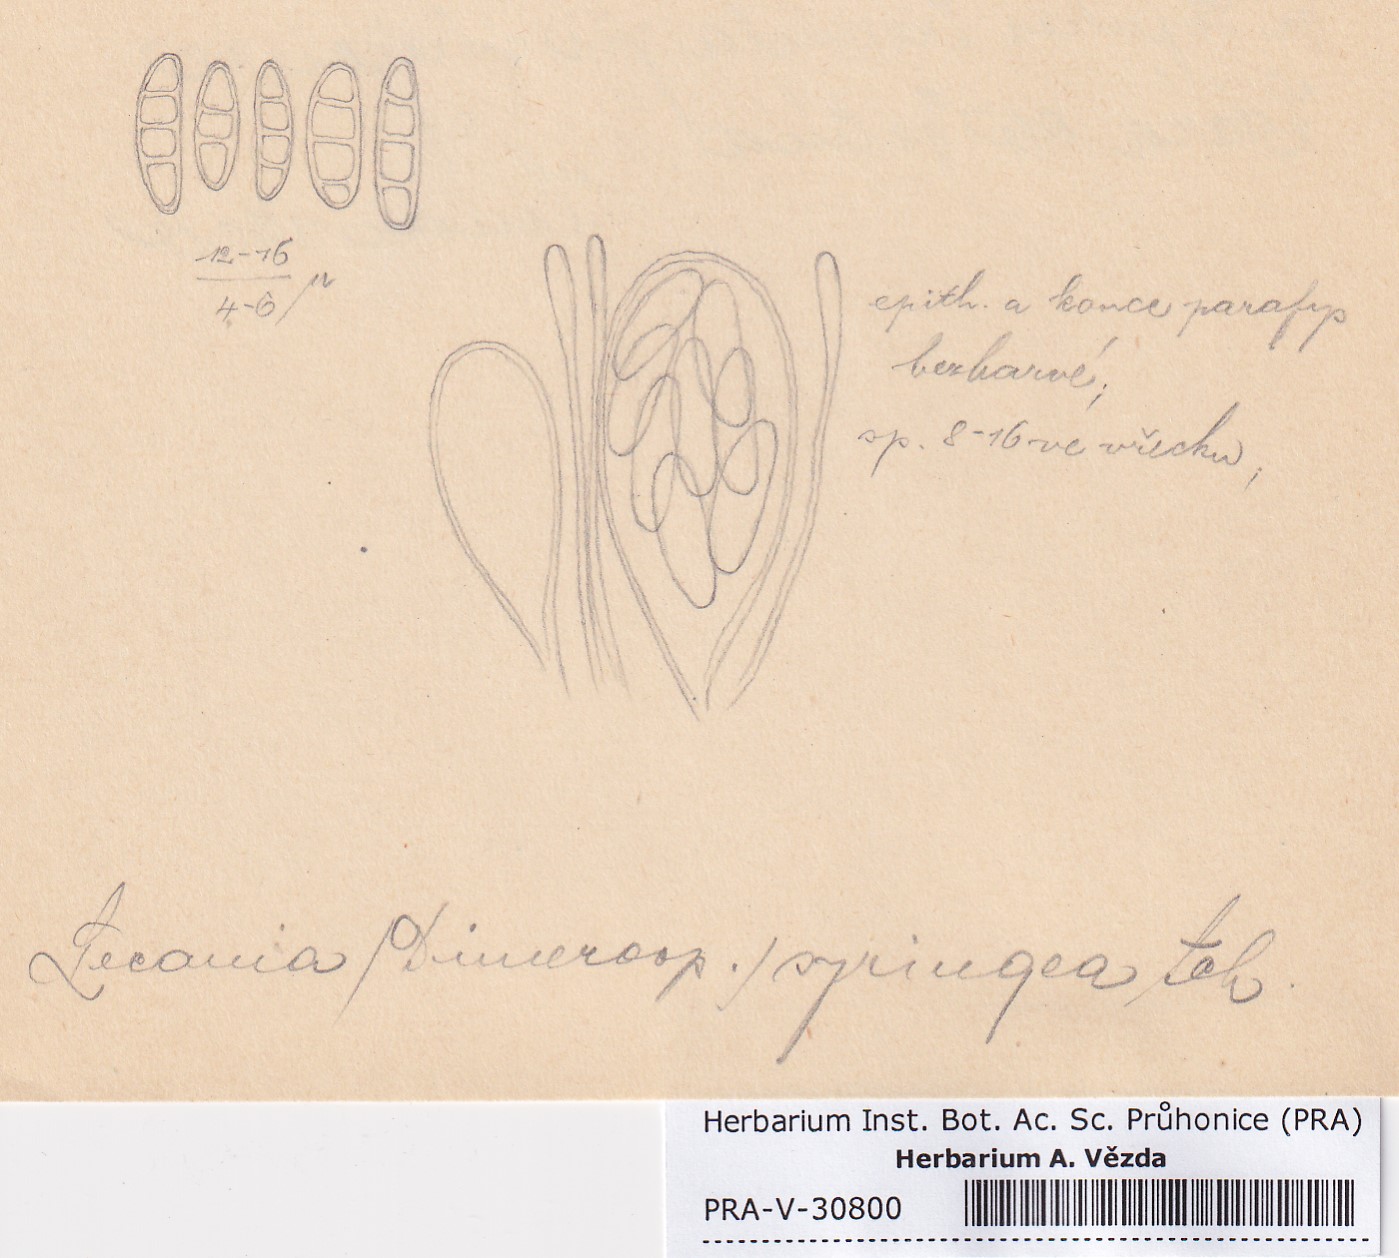 12-16
4-6 µ
epith. a konce parafys
bezbarvé;
sp. 8-16 ve vřecku;
Lecania (Dimerosp.) syringea
Herbarium Inst. Bot. Ac. Sc. Průhonice (PRA)
Herbarium A. Vězda
PRA-V-30800